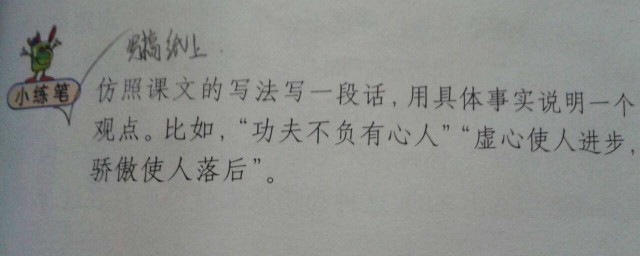 写搞纸上
小练笔
仿照课文的写法写一段话，用具体事实说明一个
观点。比如，“功夫不负有心人”“虚心使人进步，
骄傲使人落后”。